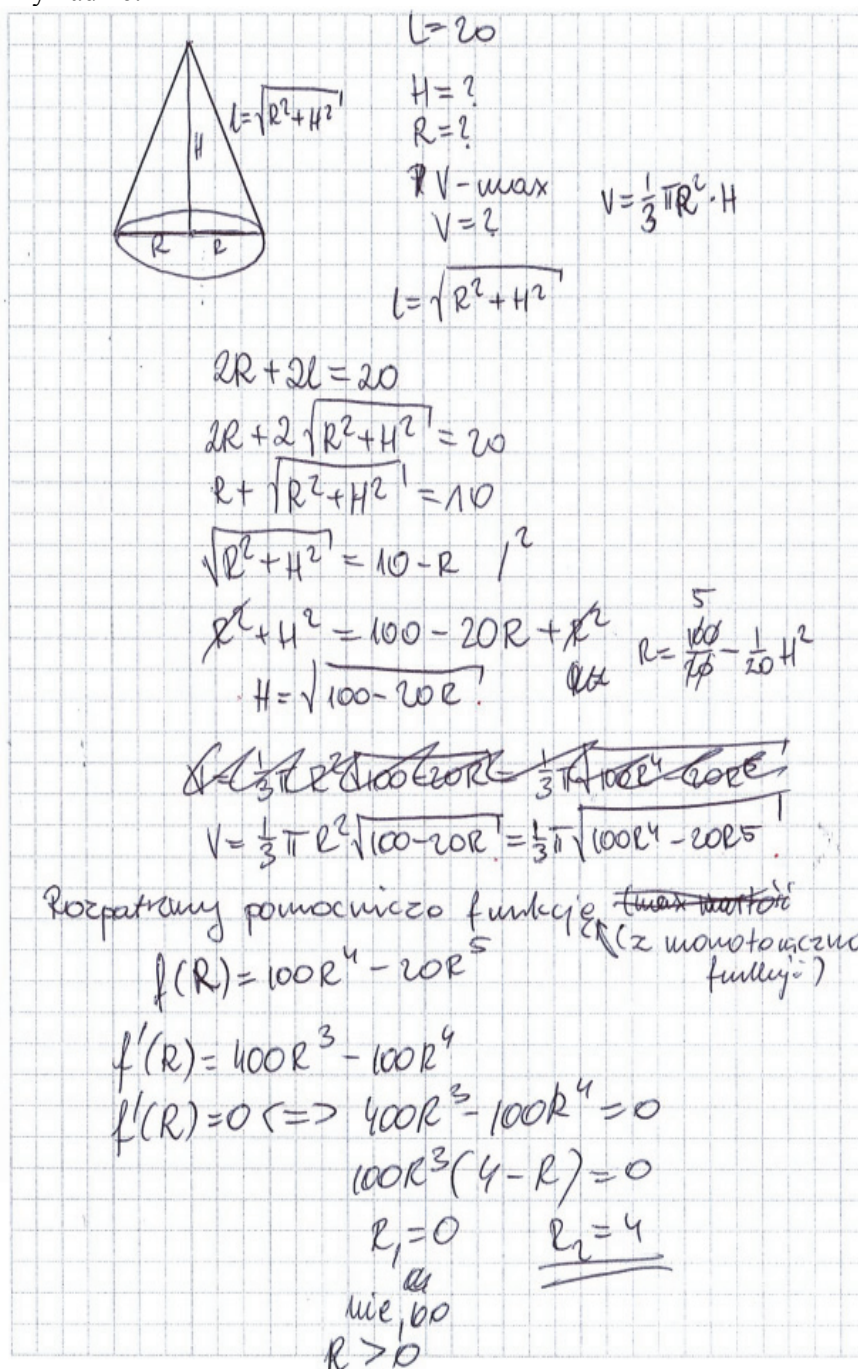 L=20
l=√(R²+H²)
H
R R
H=?
R=?
V-max
V=?
V=1/3 πR²·H
l=√(R²+H²)
2R+2l=20
2R+2√(R²+H²)=20
R+√(R²+H²)=10
√(R²+H²)=10-R /²
R²+H²=100-20R+R²
5
R=100/20-1/20 H²
H=√(100-20R)
V=1/3 π R²√(100-20R)=1/3 π√(100R⁴-20R⁵)
V=1/3 π R²√(100-20R)=1/3 π√(100R⁴-20R⁵)
Rozpatrzmy pomocniczo funkcję (max wartość
(z monotoniczno
funkcji)
f(R)=100R⁴-20R⁵
f'(R)=400R³-100R⁴
f'(R)=0 <=> 400R³-100R⁴=0
100R³(4-R)=0
R₁=0 R₂=4
nie, bo
R>0